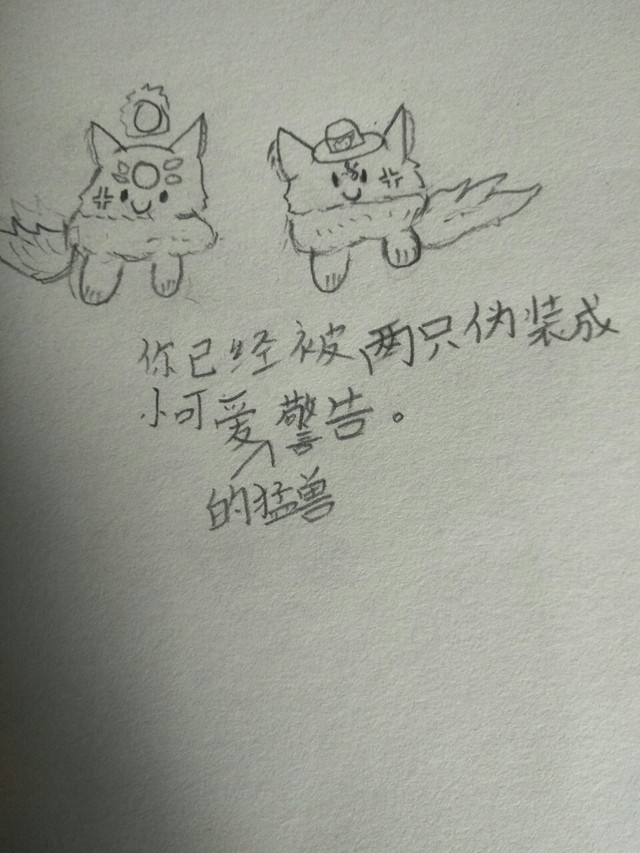 你已经被两只伪装成
小可爱警告。
的猛兽